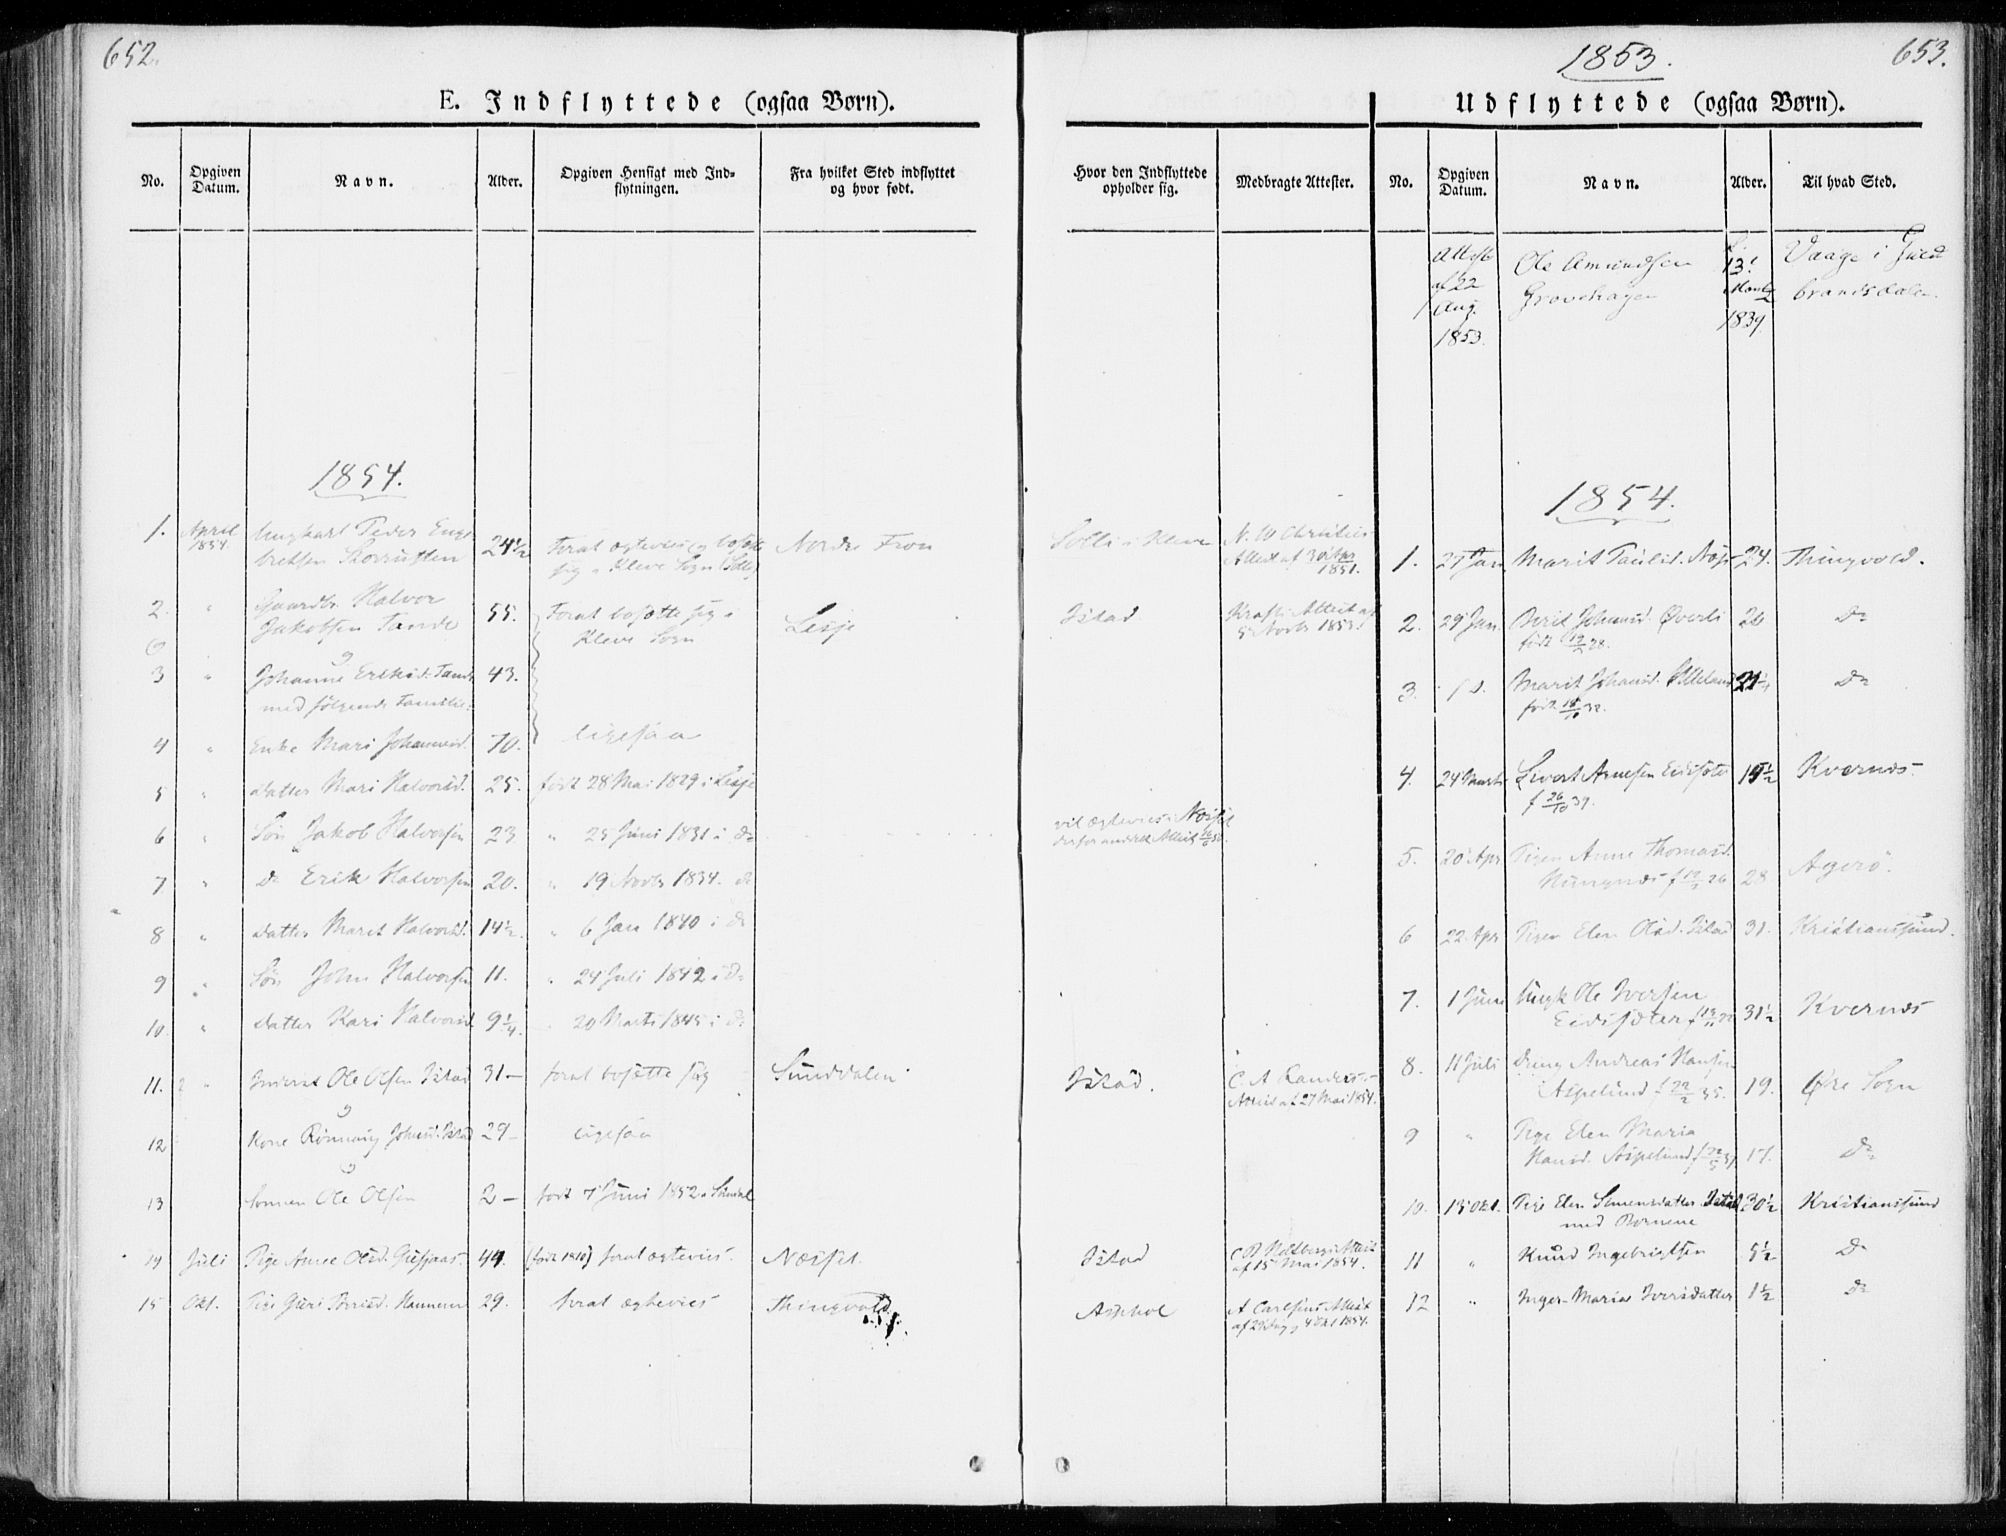 652.
E. Indflyttede (ogsaa Børn).
No.
Opgiven Datum.
Navn.
Alder.
Opgiven Hensigt med Ind-
flytningen.
Fra hvilket Sted indflyttet
og hvor født.
1854.
1. April 1854. Ungkarl Peder Enge
bretsen 24½ Forat ægtevies og bosætte
sig i Kleve Sogn Nordre Fron
2. " Gaardbr. Halvor
Jakobsen Tande 55. Forat bosætte sig i
Kleve Sogn Lesje
og
3 " Johanne Eriksd. Tande 43.
med følgende Familie:
4 " Enke Mari Johannesd. 70. ligesaa
5 " Datter Mari Halvorsd. 25. født 28 Mai 1829 i Lesje
6 " Søn Jakob Halvorsen 23 " 25 Juni 1831 i do
7 " do Erik Halvorsen 20. " 19 Novbr 1834. do
8 " Datter Marit Halvorsd. 14½. " 6 Jan 1840 i do
9 " Søn John Halvorsen 11. " 24 Juli 1842 i do
10. " Datter Kari Halvorsd. 9¼. " 20 Marts 1845 i do
11. " Inderst Ole Olsen Istad 31 – forat bosette sig Sunddalen
og
12 Kone Rønnaug Johnsd. Istad 29 – ligesaa
og
13 Sønnen Ole Olsen 2 – født 7 Juni 1852 i Sundal
14 Juli Pige Anne Olsd. 44. (født 1810) forat ægtevies. Næsset.
15 Okt. Pige Guri 29. forat ægtevies Thingvold
1853. 653.
Udflyttede (ogsaa Børn).
Hvor den Indflyttede
opholder sig.
Medbragte Attester.
No.
Opgiven Datum.
Navn.
Alder.
Til hvad Sted.
Solli i Kleve N. W Christies
Attest af 1851.
Istad Krafts Attest af
5 Novbr 1853.
vil ægtevies i Næsset
derfor meddelt Attest
Istad. C. A Randers
Attest af 27 Mai 1854.
Istad C B Holtbergs Attest
af 15 Mai 1854.
Asphol A Carlsens Attest
af 4 Okt 1854.
Attest
af 22
Aug.
1853. Ole Amundsen
Grovehagen 13
1839 Vaage i Guld
brandsdalen.
1854.
1. 27 Jan Marit Paulsd. 24. Thingvold.
2. 29 Jan. Berit Johansd. Øverli
født 19 28. 26 do
3. Marit Johansd.
født 18/10 32. 21¼ do
4. 24 Marts Sivert Arnesen Eidsæter
f 26/10 39. 15½ Kvernæs.
5. 20 Apr Pigen Anne Thomasd. 28 Agerø.
6 22 Apr Pigen Elen Olsd. Istad 31. Kristianssund.
7. 1 Juni Ungk Ole Iversen
Eidsæter 31½ Kvernæs
8. 11 Juli Dreng Andreas Hansen
Aspelund f 22/2 35. 19. Øre Sogn
9 " Pige Elen Maria
Hansd. Aspelund 17. do
10. 15 Okt. Pige Elen Simensdatter Istad 30½ Kristianssund
med Børnene
11 " Knud Ingebrigtsen 5½ do
12 " Inger-Maria Iversdatter 1½ do